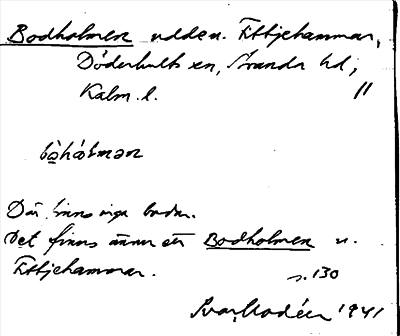 Bodholmen udden. Ettjehammar,
Döderhults sn, Stranda hd;
Kalm. l. //
bo̤hɷ́lmən
Där finns inga bodar.
Det finns ännu ett Bodholmen u.
Ettjehammar. s. 130
Ivar Modéer 1941